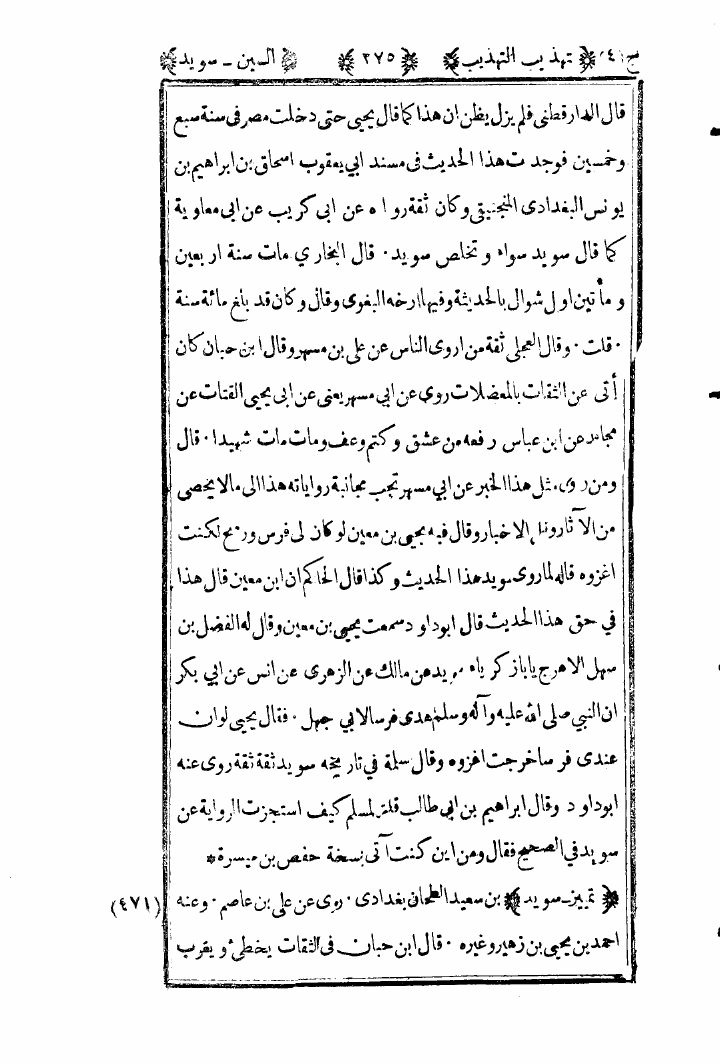 ج (٤) ﴿ تهذيب التهذيب ﴾ ﴿ ٢٧٥ ﴾ ﴿ السين ـ سويد ﴾
قال الدارقطنى فلم يزل يظن ان هذا كما قال يحيى حتى دخلت مصر فى سنة سبع
و خمسين فوجدت هذا الحديث فى مسند ابي يعقوب اسحاق بن ابراهيم بن
يونس البغدادى المنجنيقي وكان ثقة رواه عن ابى كريب عن ابى معاوية
كما قال سويد سواء و تخلص سويد ٠ قال البخاري مات سنة اربعين
و مأتين اول شوال بالحديثة وفيها ارخه البغوى وقال وكان قد بلغ مائة سنة
٠ قلت ٠ وقال العجلى ثقة من اروى الناس عن على بن مسهر وقال ابن حبان كان
أتى عن الثقات بالمعضلات روى عن ابي مسهر يعنى عن ابى يحيى القتات عن
مجاهد عن ابن عباس رفعه من عشق وكتم وعف ومات مات شهيدا ٠ قال
ومن روى مثل هذا الخبر عن ابي مسهر تجب مجانبة رواياته هذا الى مالا يحصى
من الآثار وتلك الاخبار وقال فيه يحيى بن معين لو كان لى فرس ورمح لكنت
اغزوه قاله لما روى سويد هذا الحديث وكذا قال الحاكم ان ابن معين قال هذا
في حق هذا الحديث قال ابوداود سمعت يحيى بن معين وقال له الفضل بن
سهل الاعرج يا ابا زكرياء سويد عن مالك عن الزهرى عن انس عن ابي بكر
ان النبي صلى الله عليه وآله وسلم هدى فرسا لابي جهل ٠ فقال يحيى لو ان
عندى فرسا خرجت اغزوه وقال سلمة في تاريخه سويد ثقة ثقة روى عنه
ابوداود وقال ابراهيم بن ابى طالب قلت لمسلم كيف استجزت الرواية عن
سويد في الصحيح فقال ومن اين كنت آتى بنسخة حفص بن ميسرة *
﴿ تمييز ـ سويد ﴾ بن سعيد الطحان بغدادى ٠ روى عن على بن عاصم ٠ وعنه (٤٧١)
احمد بن يحيى بن زهير وغيره ٠ قال ابن حبان فى الثقات يخطئ و يغرب